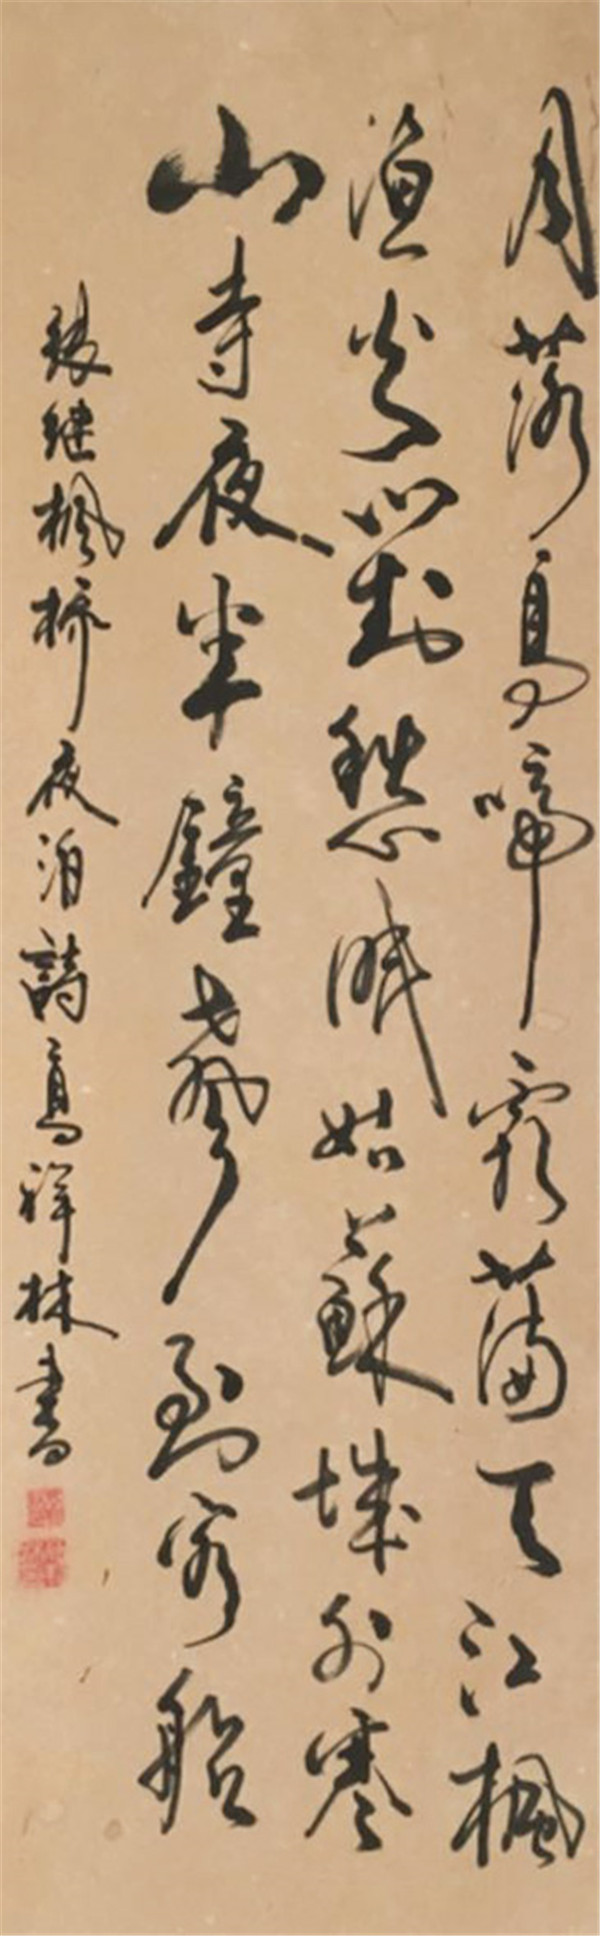 月落烏啼霜滿天江楓
漁火對愁眠姑蘇城外寒
山寺夜半鐘聲到客船
張繼楓橋夜泊詩高祥林書